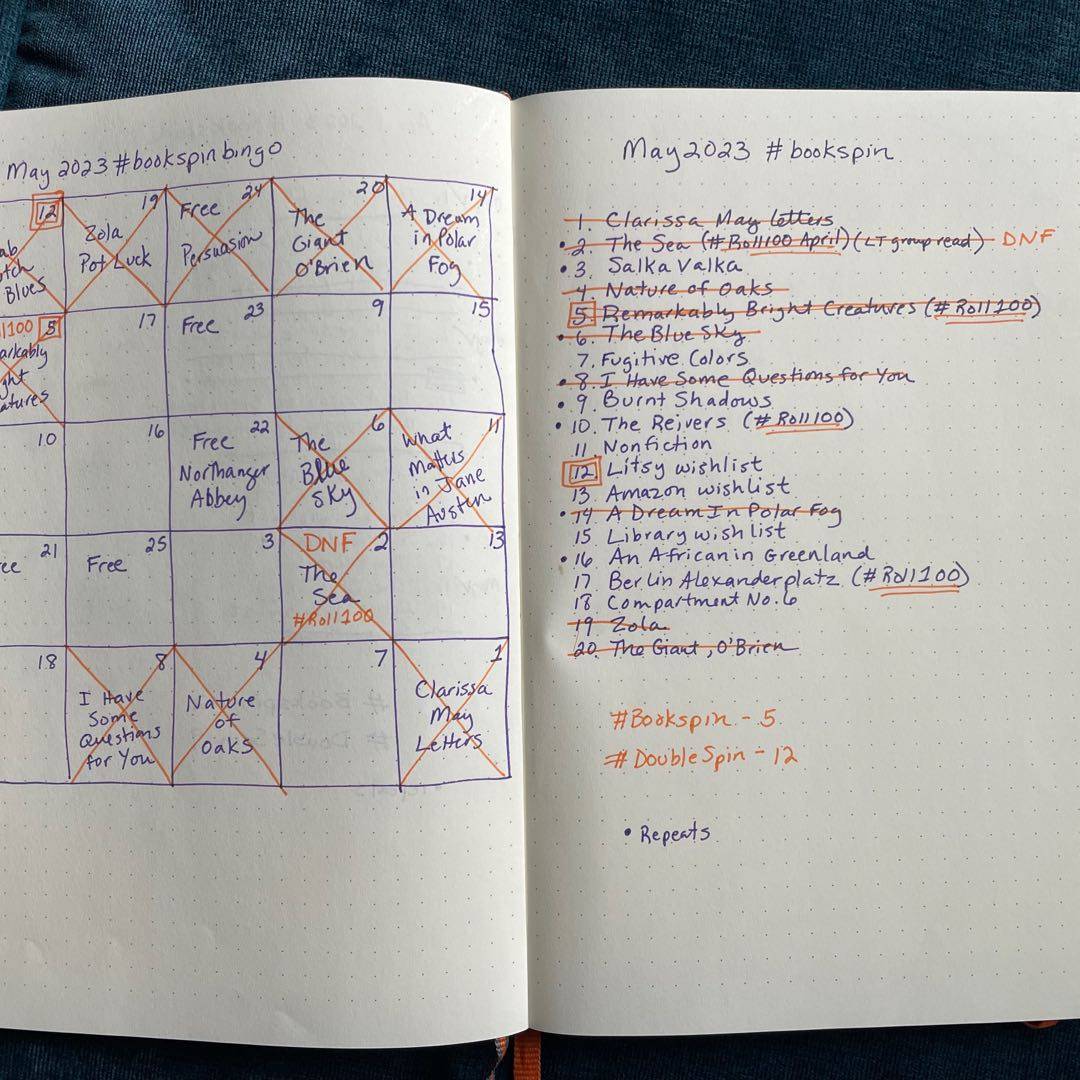 May 2023 #bookspinbingo
12
Blues
19
Zola
Pot Luck
24
Free
Persuasion
20
The
Giant
O'Brien
14
A Dream
in Polar
Fog
5
17
23
Free
9
15
10
16
22
Free
Northanger
Abbey
6
The
Blue
Sky
11
What
Matters
in Jane
Austen
21
25
Free
3
2
DNF
The
Sea
#Roll100
13
18
8
I Have
Some
Questions
for You
4
Nature
of
Oaks
7
1
Clarissa
May
Letters
May 2023 #bookspin
1. Clarissa May letters
• 2. The Sea (#Roll100 April) (LT group read) DNF
• 3. Salka Valka
4. Nature of Oaks
5. Remarkably Bright Creatures (#Roll100)
• 6. The Blue Sky
7. Fugitive Colors
• 8. I Have Some Questions for You
• 9. Burnt Shadows
• 10. The Reivers (#Roll100)
11. Nonfiction
12. Litsy wishlist
13 Amazon wishlist
• 14 A Dream In Polar Fog
15 Library wishlist
• 16 An African in Greenland
17 Berlin Alexanderplatz (#Roll100)
18 Compartment No. 6
19 Zola
20. The Giant, O'Brien
#Bookspin - 5
#DoubleSpin - 12
• Repeats